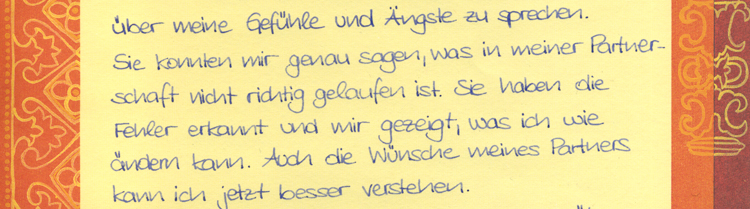 über meine Gefühle und Ängste zu sprechen.
Sie konnten mir genau sagen, was in meiner Partner-
schaft nicht richtig gelaufen ist. Sie haben die
Fehler erkannt und mir gezeigt, was ich wie
ändern kann. Auch die Wünsche meines Partners
kann ich jetzt besser verstehen.